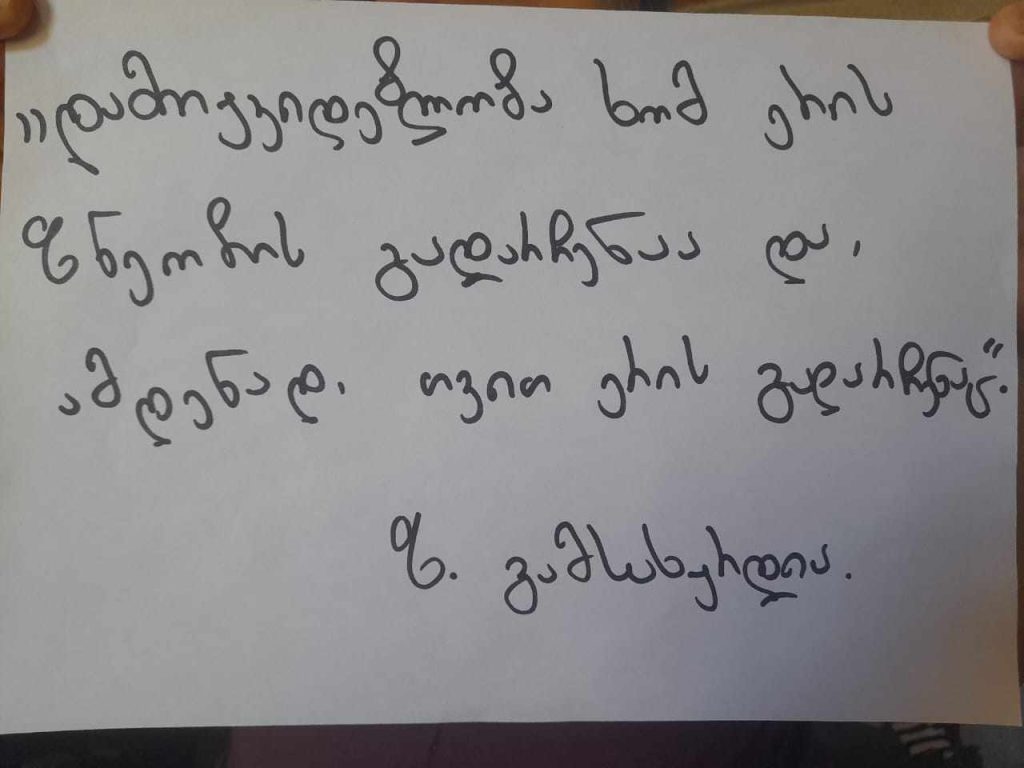 „დამოუკიდებლობა ხომ ერის
ზნეობის გადარჩენაა და,
ამდენად, თვით ერის გადარჩენაც."
ზ. გამსახურდია.